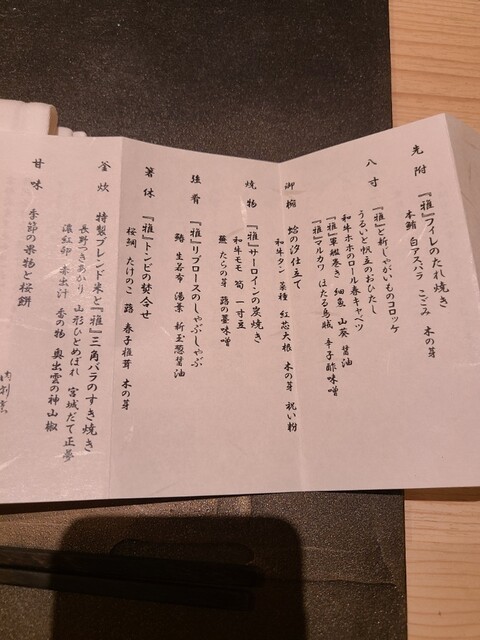 先附
『雅』フィレのたれ焼き
本鮪 白アスパラ こごみ 木の芽
八寸
『雅』と新じゃがいものコロッケ
うるいと帆立のおひたし
和牛ホホのロール春キャベツ
『雅』軍艦巻き 細魚 山葵 醤油
『雅』マルカワ ほたる烏賊 辛子酢味噌
御椀
蛤の汐仕立て
和牛タン 菜種 紅芯大根 木の芽 祝い粉
焼物
『雅』サーロインの炭焼き
和牛モモ 筍 一寸豆
蕪 たらの芽 蕗の薹味噌
強肴
『雅』リブロースのしゃぶしゃぶ
鰆 生若布 湯葉 新玉葱醤油
箸休
『雅』トンビの焚合せ
桜鯛 たけのこ 蕗 春子椎茸 木の芽
釜炊
特製ブレンド米と『雅』三角バラのすき焼き
長野つきあかり 山形ひとめぼれ 宮城だて正夢
濃紅卵 赤出汁 香の物 奥出雲の神山椒
甘味
季節の果物と桜餅